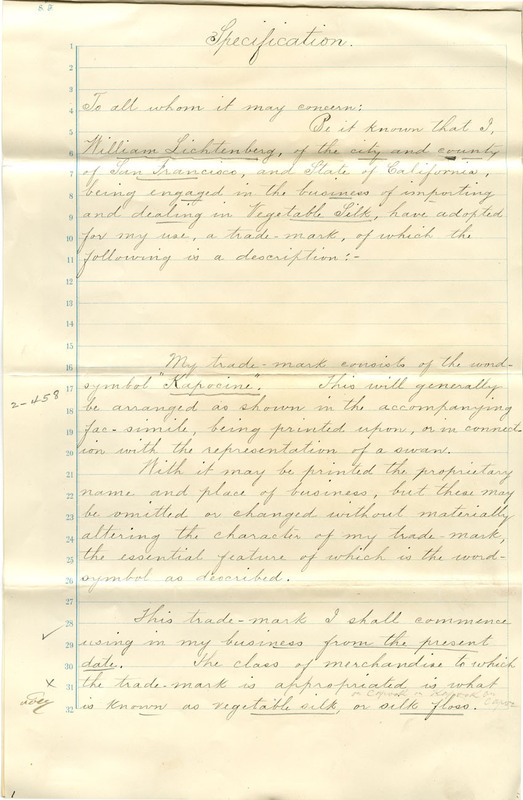 Specification.
1
2
3
To all whom it may concern:
4
Be it known that I,
5
William Lichtenberg, of the city and county
6
of San Francisco, and State of California,
7
being engaged in the business of importing
8
and dealing in Vegetable Silk, have adopted
9
for my use, a trade-mark, of which the
10
following is a description:-
11
12
13
14
15
My trade-mark consists of the word-
16
symbol "Kapocine". This will generally
17
2-458
be arranged as shown in the accompanying
18
fac-simile, being printed upon, or in connect-
19
ion with the representation of a swan.
20
With it may be printed the proprietary
21
name and place of business, but these may
22
be omitted or changed without materially
23
altering the character of my trade-mark,
24
the essential feature of which is the word-
25
symbol as described.
26
27
This trade-mark I shall commence
28
using in my business from the present
29
date. The class of merchandise to which
30
x
the trade-mark is appropriated is what
31
is known as vegetable silk, or silk floss.
32